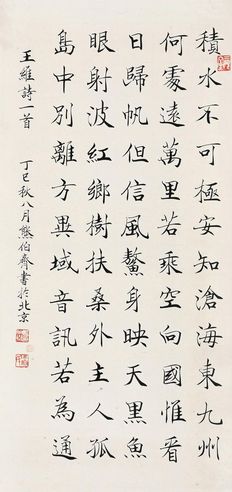 積水不可極安知滄海東九州
何處遠萬里若乘空向國惟看
日歸帆但信風鰲身映天黑魚
眼射波紅鄉樹扶桑外主人孤
島中別離方異域音訊若為通
王維詩一首 丁巳秋八月熊伯齊書於北京